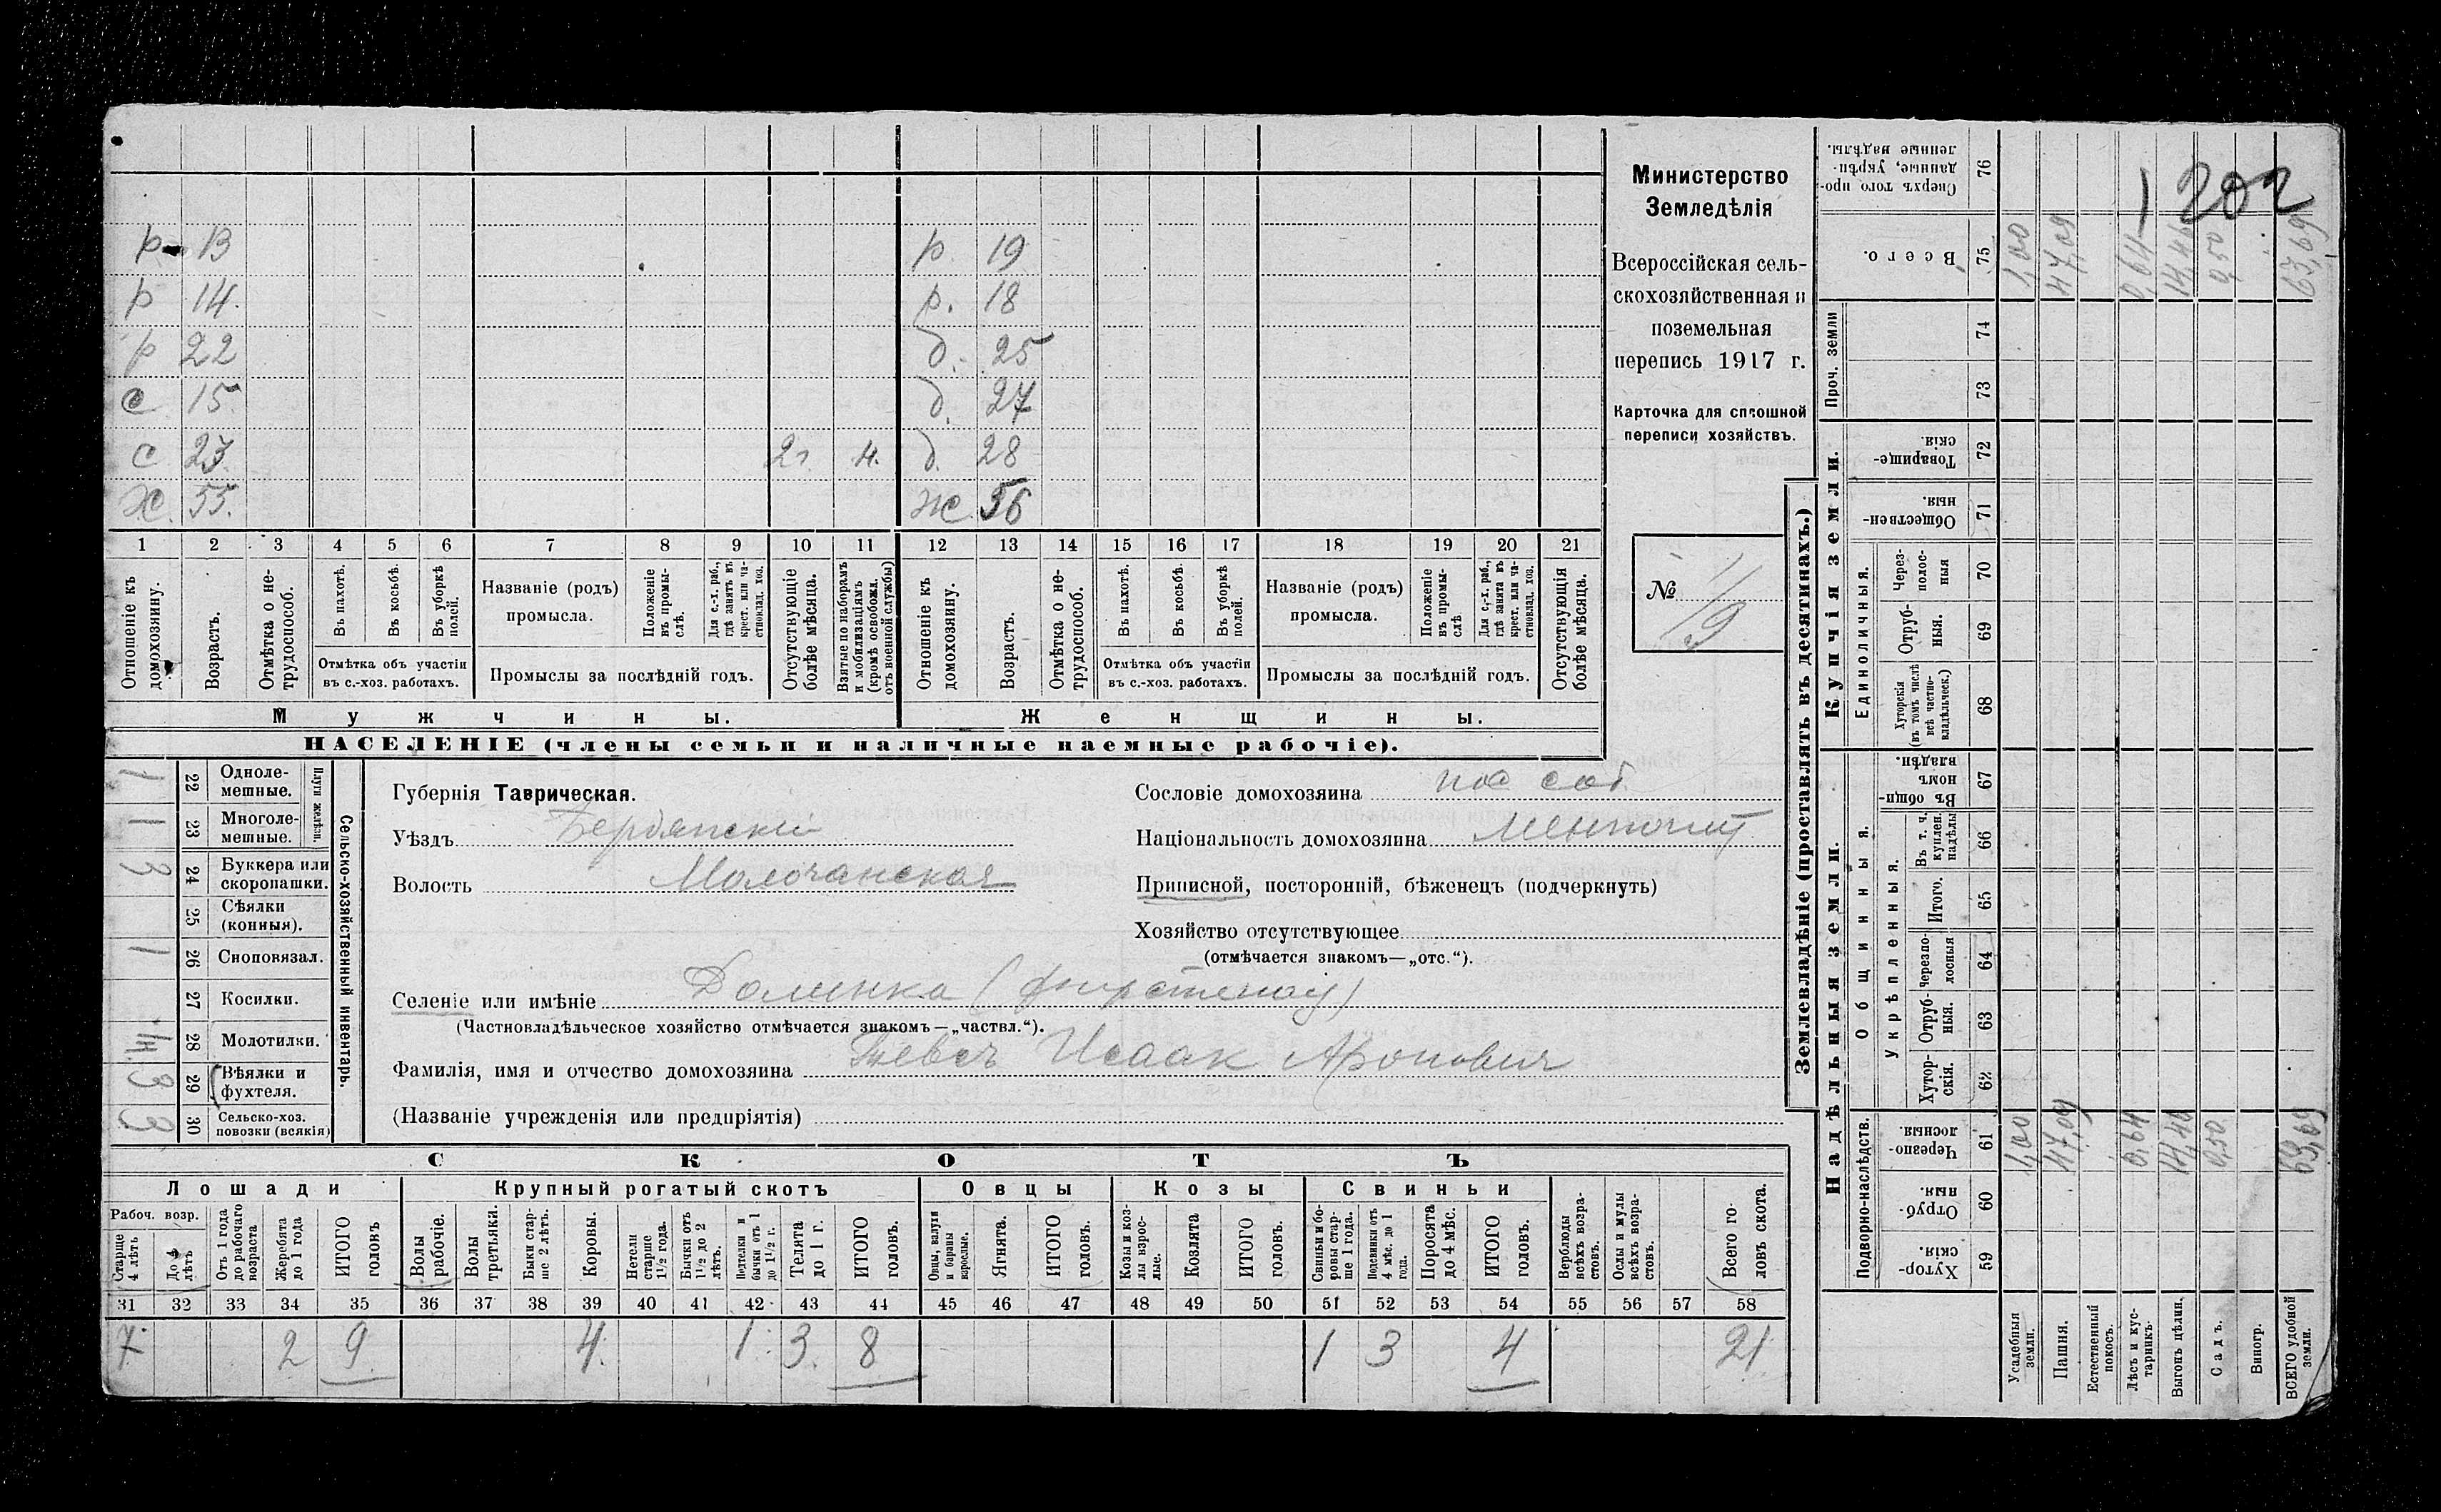 202
р 13
р 14.
р 22
с 15.
с 23 2г. н.
ж. 55.
р. 19
р. 18
д. 25
д. 27
д. 28
ж. 56
1 2 3 4 5 6 7 8 9 10 11 12 13 14 15 16 17 18 19 20 21
Отношеніе къ домохозяину.
Возрастъ.
Отмѣтка о не-трудоспособ.
Въ пахотѣ.
Въ косьбѣ.
Въ уборкѣ полей.
Отмѣтка объ участіи въ с.-хоз. работахъ.
Названіе (родъ) промысла.
Положеніе въ промы-слѣ.
Для с.-х. раб., гдѣ занятъ въ крест. или ча-стновлад. хоз.
Промыслы за послѣдній годъ.
Отсутствующіе болѣе мѣсяца.
Взятые по наборамъ и мобилизаціямъ (кромѣ освобожд. отъ военной службы)
Отношеніе къ домохозяину.
Возрастъ.
Отмѣтка о не-трудоспособ.
Въ пахотѣ.
Въ косьбѣ.
Въ уборкѣ полей.
Отмѣтка объ участіи въ с.-хоз. работахъ.
Названіе (родъ) промысла.
Положеніе въ промы-слѣ
Для с.-х. раб., гдѣ занята въ крест. или ча-стновлад. хоз.
Промыслы за послѣдній годъ.
Отсутствующія болѣе мѣсяца.
Мужчины. Женщины.
НАСЕЛЕНІЕ (члены семьи и наличные наемные рабочіе).
Министерство
Земледѣлія
Всероссійская сель-
скохозяйственная и
поземельная
перепись 1917 г.
Карточка для сплошной
переписи хозяйствъ.
№ 1/9
Сельско-хозяйственный инвентарь.
Плуги желѣзн.
1 22 Одноле-мешные.
1 23 Многоле-мешные.
3 24 Буккера или скоропашки.
25 Сѣялки (конныя).
1 26 Сноповязал.
27 Косилки.
28 Молотилки.
3 29 Вѣялки и фухтеля.
3 30 Сельско-хоз. повозки (всякія)
Губернія Таврическая.
Уѣздъ Бердянскій
Волость Молочанская
Сословіе домохозяина пос соб.
Національность домохозяина Менонит
Приписной, посторонній, бѣженецъ (подчеркнуть)
Хозяйство отсутствующее
(отмѣчается знакомъ—„отс.“).
Селеніе или имѣніе Долинка (Фирстенау)
(Частновладѣльческое хозяйство отмѣчается знакомъ—„частвл.“).
Фамилія, имя и отчество домохозяина Тевсъ Исаак Аронович
(Названіе учрежденія или предпріятія)
СКОТЪ
Лошади Крупный рогатый скотъ Овцы Козы Свиньи
Рабоч. возр.
Старше 4 лѣтъ
До 4 лѣтъ
Отъ 1 года до рабочаго возраста
Жеребята до 1 года
ИТОГО головъ
Волы рабочіе.
Волы третьяки.
Быки стар-ше 2 лѣтъ.
Коровы.
Нетели старше 1½ года.
Бычки отъ 1½ до 2 лѣтъ.
Подтелки и бычки отъ 1 до 1½ г.
Телята до 1 г.
ИТОГО головъ.
Овцы, валухи и бараны взрослые.
Ягнята.
ИТОГО головъ.
Козы и коз-лы взрос-лые.
Козлята
ИТОГО головъ.
Свиньи и бо-ровы стар-ше 1 года.
Подсвинки отъ 4 мѣс. до 1 года.
Поросята до 4 мѣс.
ИТОГО головъ.
Верблюды всѣхъ возра-стовъ.
Ослы и мулы всѣхъ возра-стовъ.
Всего го-ловъ скота.
31 32 33 34 35 36 37 38 39 40 41 42 43 44 45 46 47 48 49 50 51 52 53 54 55 56 57 58
7 2 9 4 1 3 8 1 3 4 21
Землевладѣніе (проставлять въ десятинахъ.)
Надѣльныя земли. Купчія земли. Проч. земли
Подворно-наслѣдств.
Общинныя.
Укрѣпленныя.
Единоличныя.
Хутор-скія 59
Отруб-ныя. 60
Черезпо-лосныя. 61
Хутор-скія. 62
Отруб-ныя. 63
Черезпо-лосныя 64
Итого. 65
Въ т. ч. куплен. надѣлы 66
Въ общи-номъ владѣн. 67
Хуторскія (въ томъ числѣ всѣ частно-владѣльческ.) 68
Отруб-ныя. 69
Через-полос-ныя 70
Обществен-ныя. 71
Товарище-скія. 72
73
74
Всего. 75
Сверхъ того про-данные, укрѣп-ленные надѣлы. 76
Усадебныя земли. 1,00 1,00
Пашня. 47,09 47,09
Естественный покосъ.
Лѣсъ и кус-тарникъ. 0,64 0,64
Выгонъ цѣлин.
Садъ. 0,50 0,50
Виногр.
ВСЕГО удобной земли. 63,69 63,69